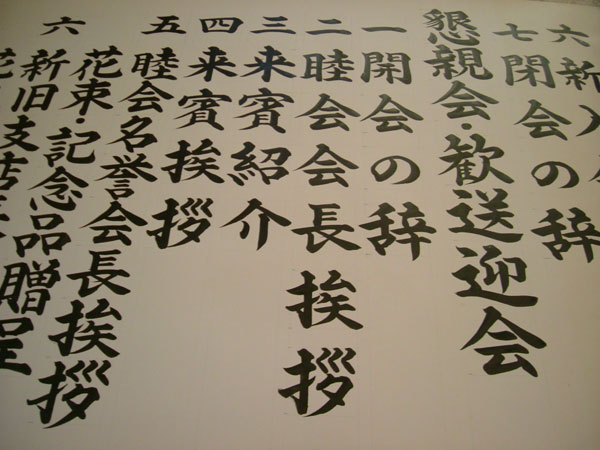 六 新入
七 閉会の辞
懇親会・歓送迎会
一 開会の辞
二 睦会会長挨拶
三 来賓紹介
四 来賓挨拶
五 睦会名誉会長挨拶
花束・記念品贈呈
六 新旧支店
花